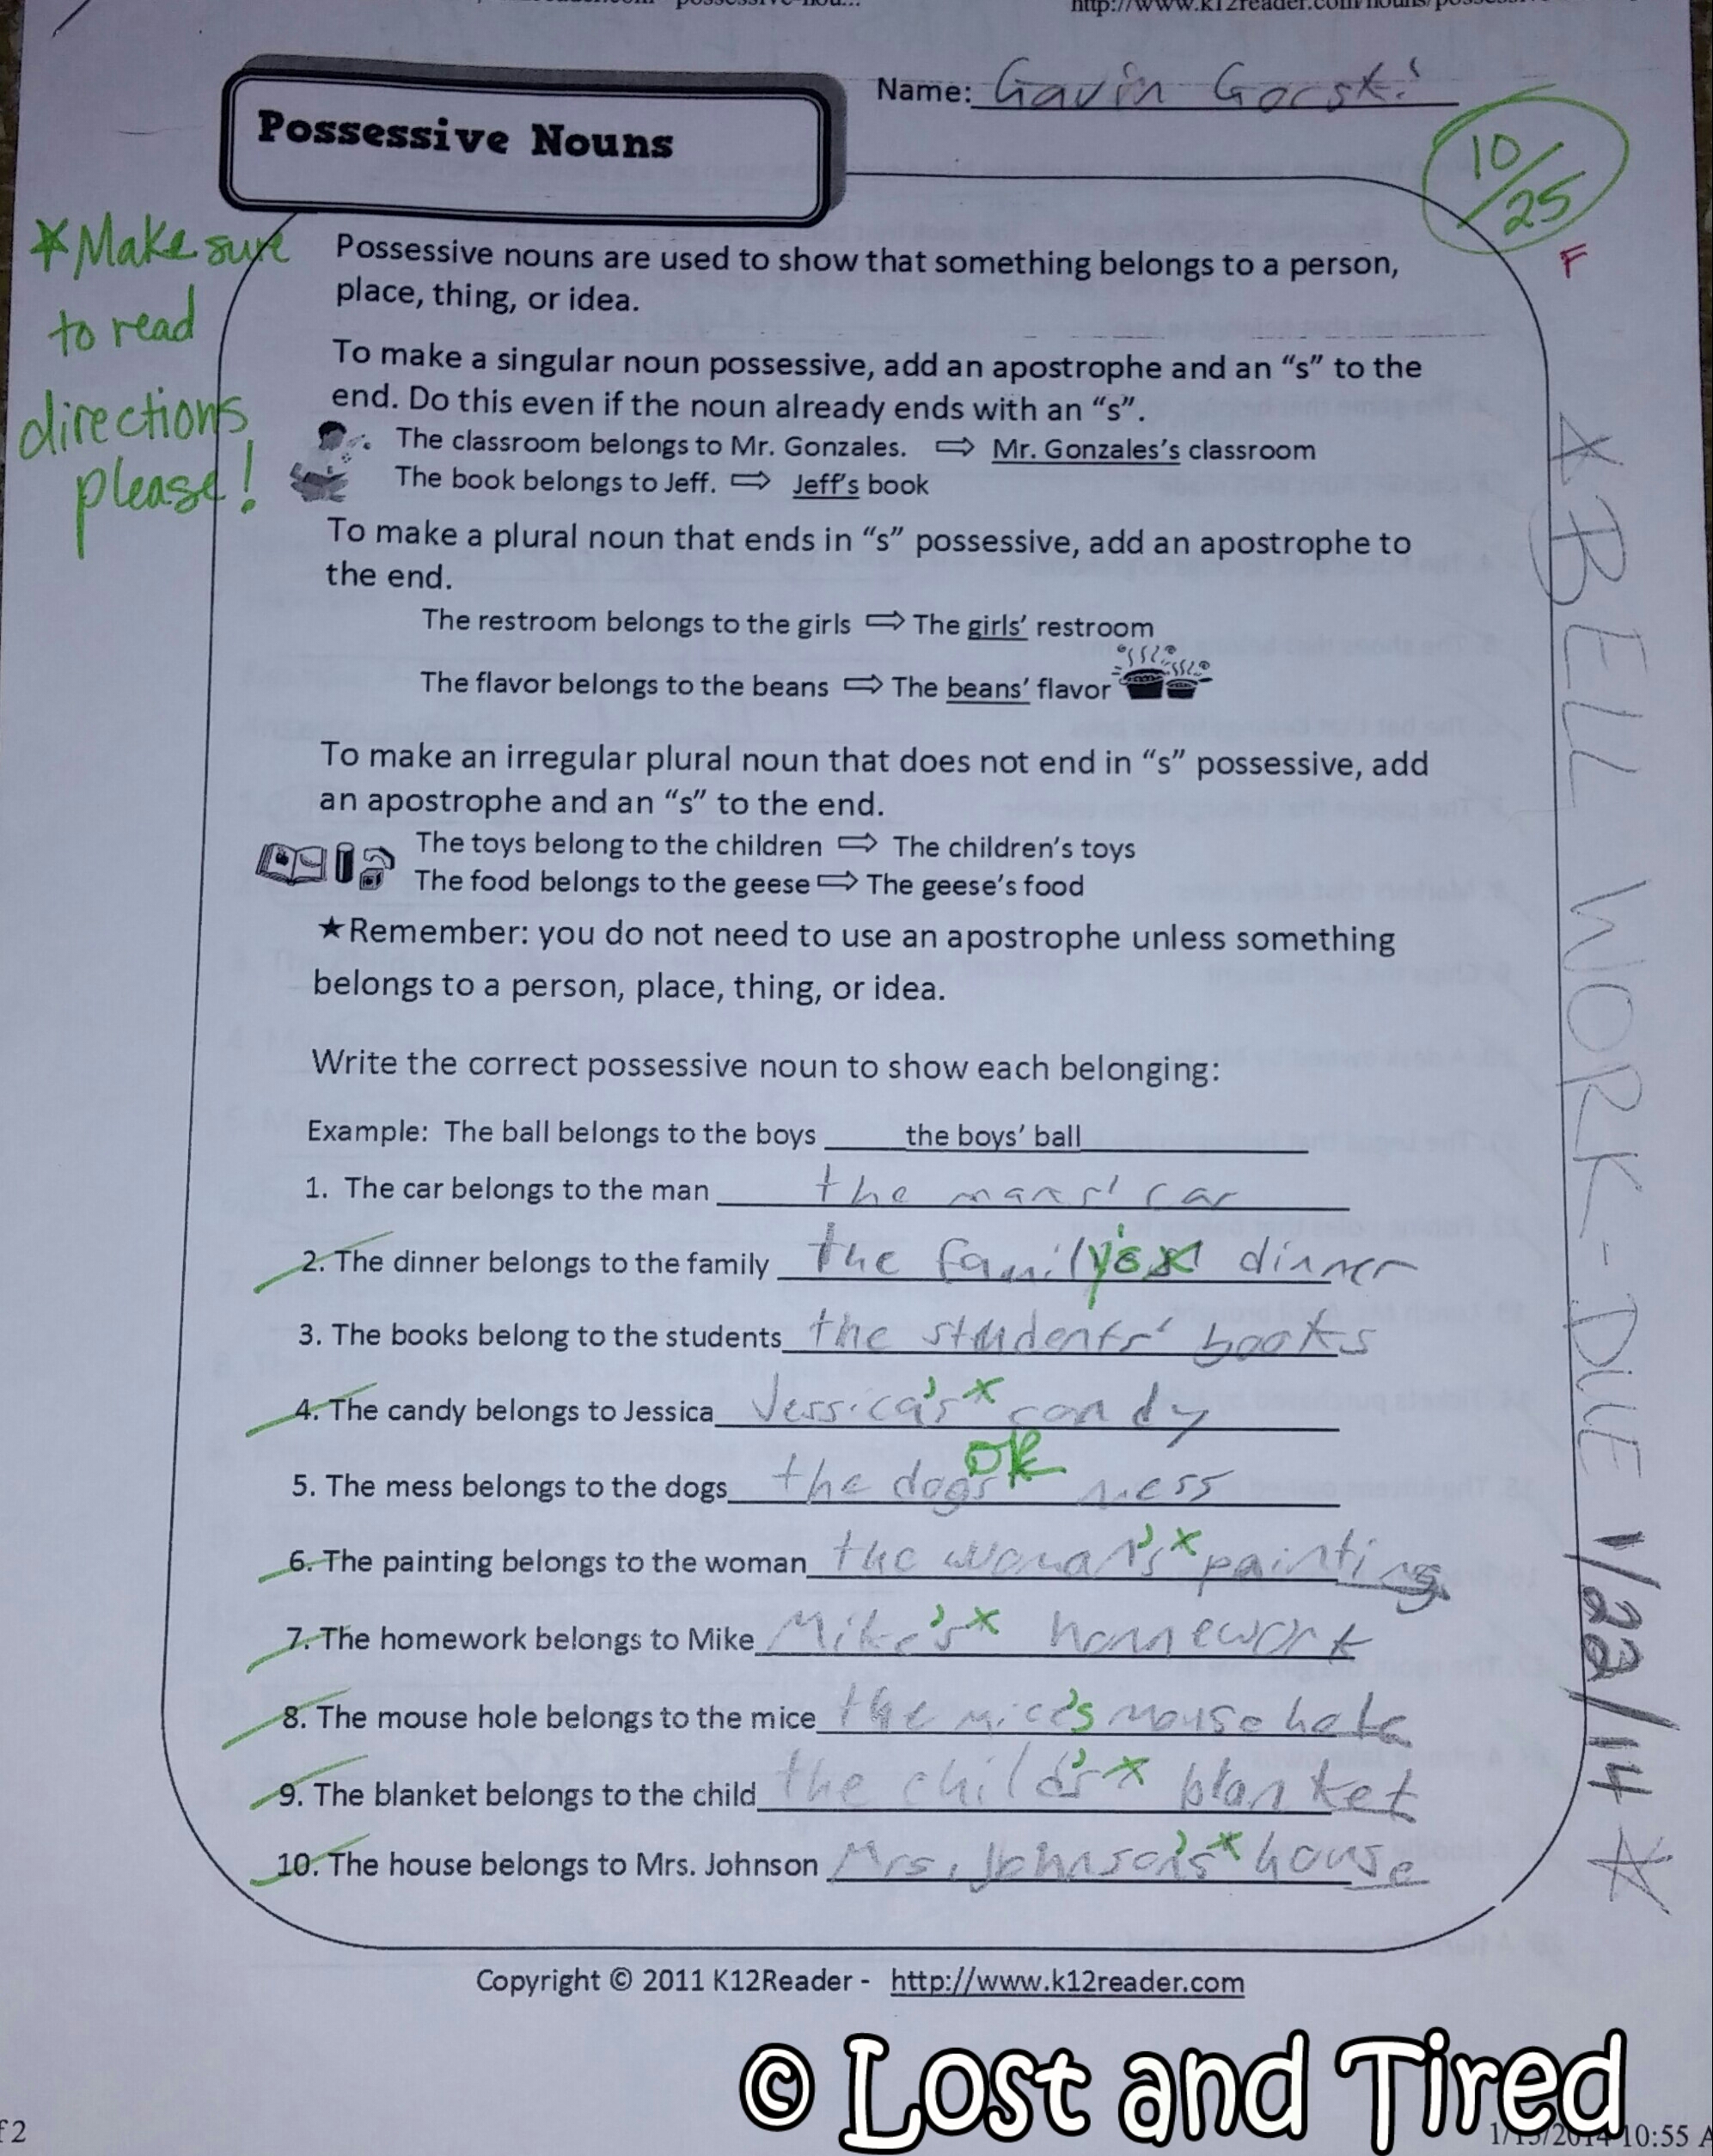 http://www.k12reader.com/nouns/possessive
Name: Gavin Gorski
Possessive Nouns
10/25
F
*Make sure
to read
directions
please!
Possessive nouns are used to show that something belongs to a person,
place, thing, or idea.
To make a singular noun possessive, add an apostrophe and an “s” to the
end. Do this even if the noun already ends with an “s”.
The classroom belongs to Mr. Gonzales. ⇨ Mr. Gonzales’s classroom
The book belongs to Jeff. ⇨ Jeff’s book
To make a plural noun that ends in “s” possessive, add an apostrophe to
the end.
The restroom belongs to the girls ⇨ The girls’ restroom
The flavor belongs to the beans ⇨ The beans’ flavor
To make an irregular plural noun that does not end in “s” possessive, add
an apostrophe and an “s” to the end.
The toys belong to the children ⇨ The children’s toys
The food belongs to the geese ⇨ The geese’s food
★Remember: you do not need to use an apostrophe unless something
belongs to a person, place, thing, or idea.
Write the correct possessive noun to show each belonging:
Example: The ball belongs to the boys the boys’ ball
1. The car belongs to the man the mans' car
2. The dinner belongs to the family the family's dinner
3. The books belong to the students the students' books
4. The candy belongs to Jessica Jessica's candy
OK
5. The mess belongs to the dogs the dogs' mess
6. The painting belongs to the woman the woman's painting
7. The homework belongs to Mike Mike's homework
8. The mouse hole belongs to the mice the mice's mouse hole
9. The blanket belongs to the child the child's blanket
10. The house belongs to Mrs. Johnson Mrs. Johnson's house
★ BELL WORK - DUE 1/22/14 ★
Copyright © 2011 K12Reader - http://www.k12reader.com
© Lost and Tired
f 2
10:55 A